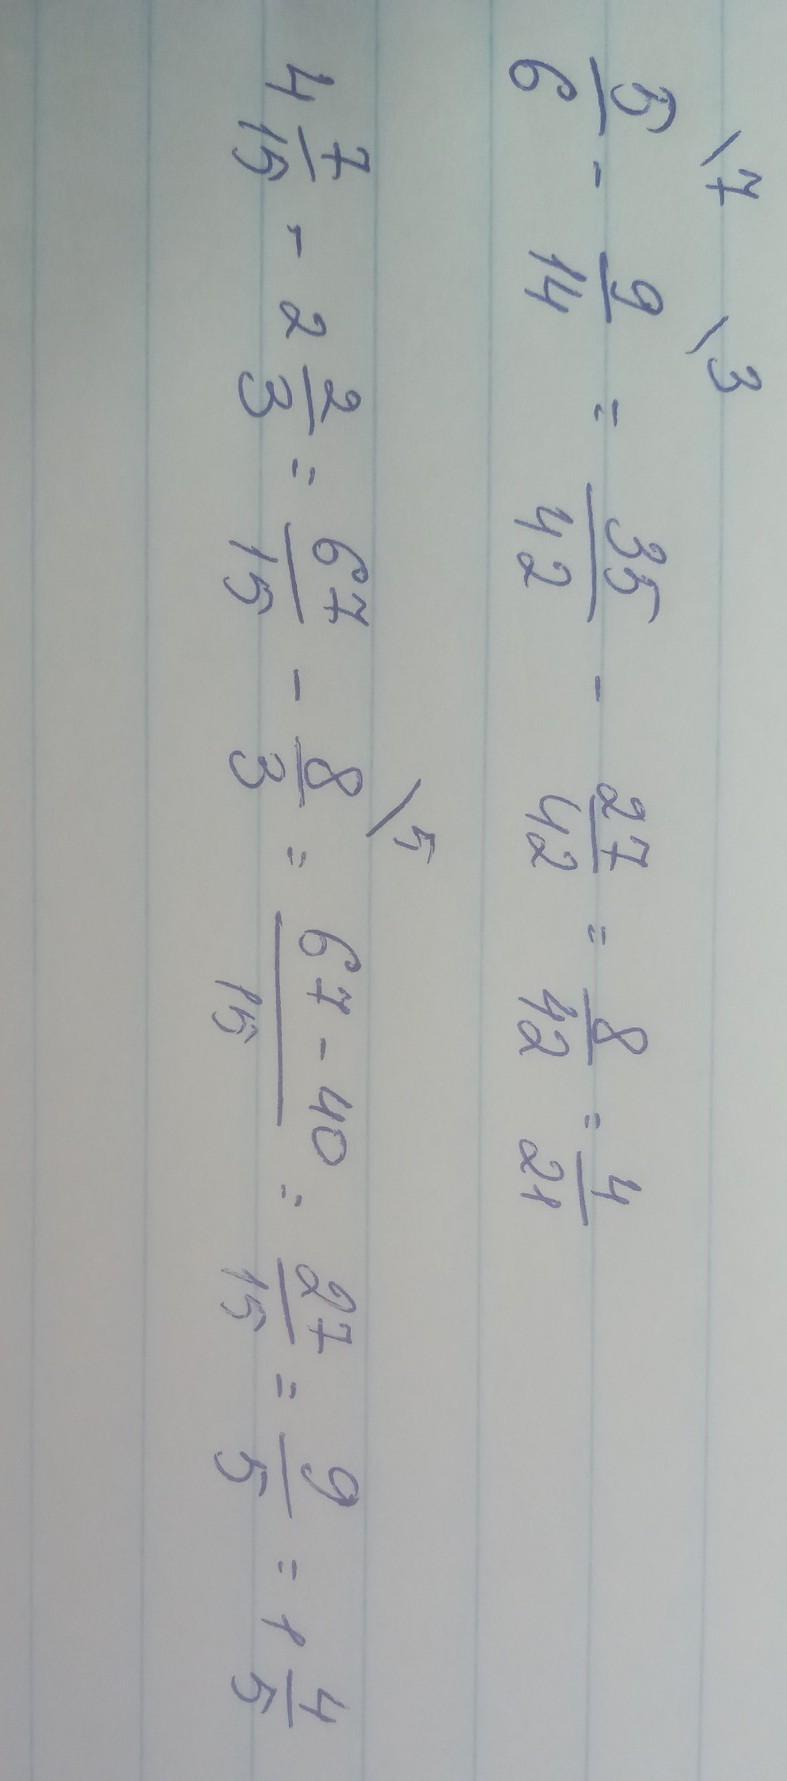 5/6 \7 - 9/14 \3 = 35/42 - 27/42 = 8/42 = 4/21
4 7/15 - 2 2/3 = 67/15 - 8/3 \5 = 67-40/15 = 27/15 = 9/5 = 1 4/5